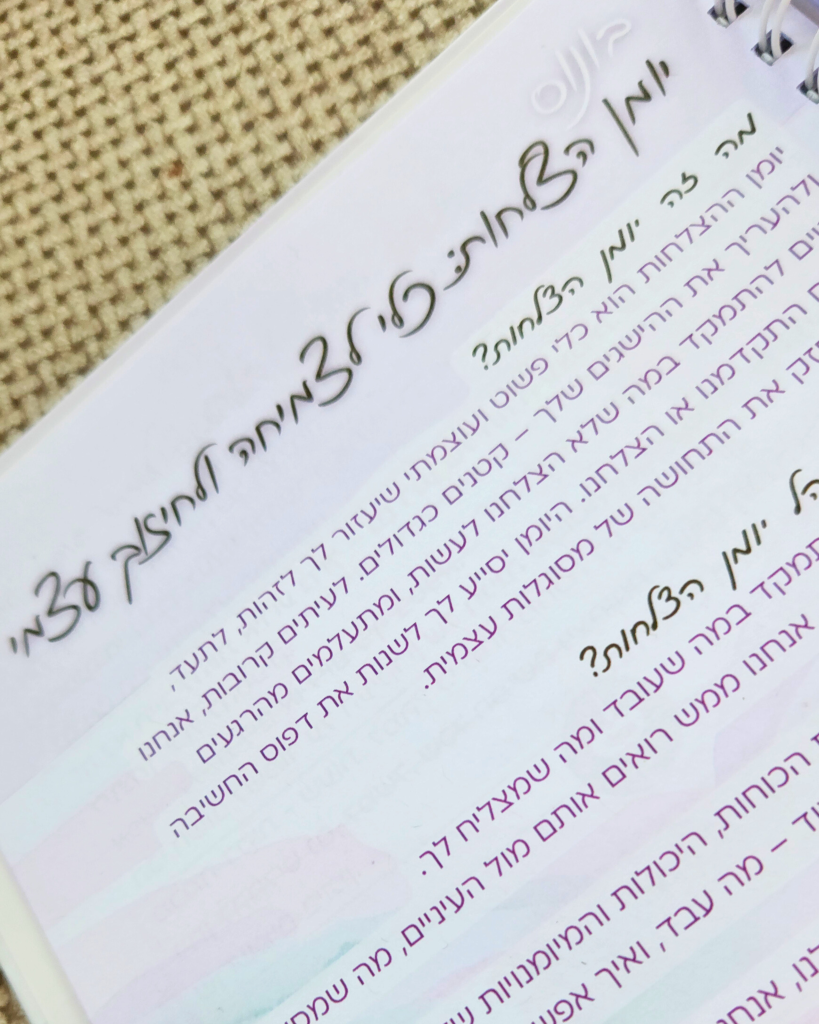 בונוס
יומן הצלחות: כלי לצמיחה ולחיזוק עצמי
מה זה יומן הצלחות?
יומן ההצלחות הוא כלי פשוט ועוצמתי שיעזור לך לזהות, לתעד,
ולהעריך את ההישגים שלך – קטנים כגדולים. לעיתים קרובות, אנחנו
להתמקד במה שלא הצלחנו לעשות, ומתעלמים מהרגעים
התקדמנו או הצלחנו. היומן יסייע לך לשנות את דפוס החשיבה
את התחושה של מסוגלות עצמית.
יומן הצלחות?
במה שעובד ומה שמצליח לך.
אנחנו ממש רואים אותם מול העיניים, מה
הכוחות, היכולות והמיומנויות
– מה עבד, ואיך